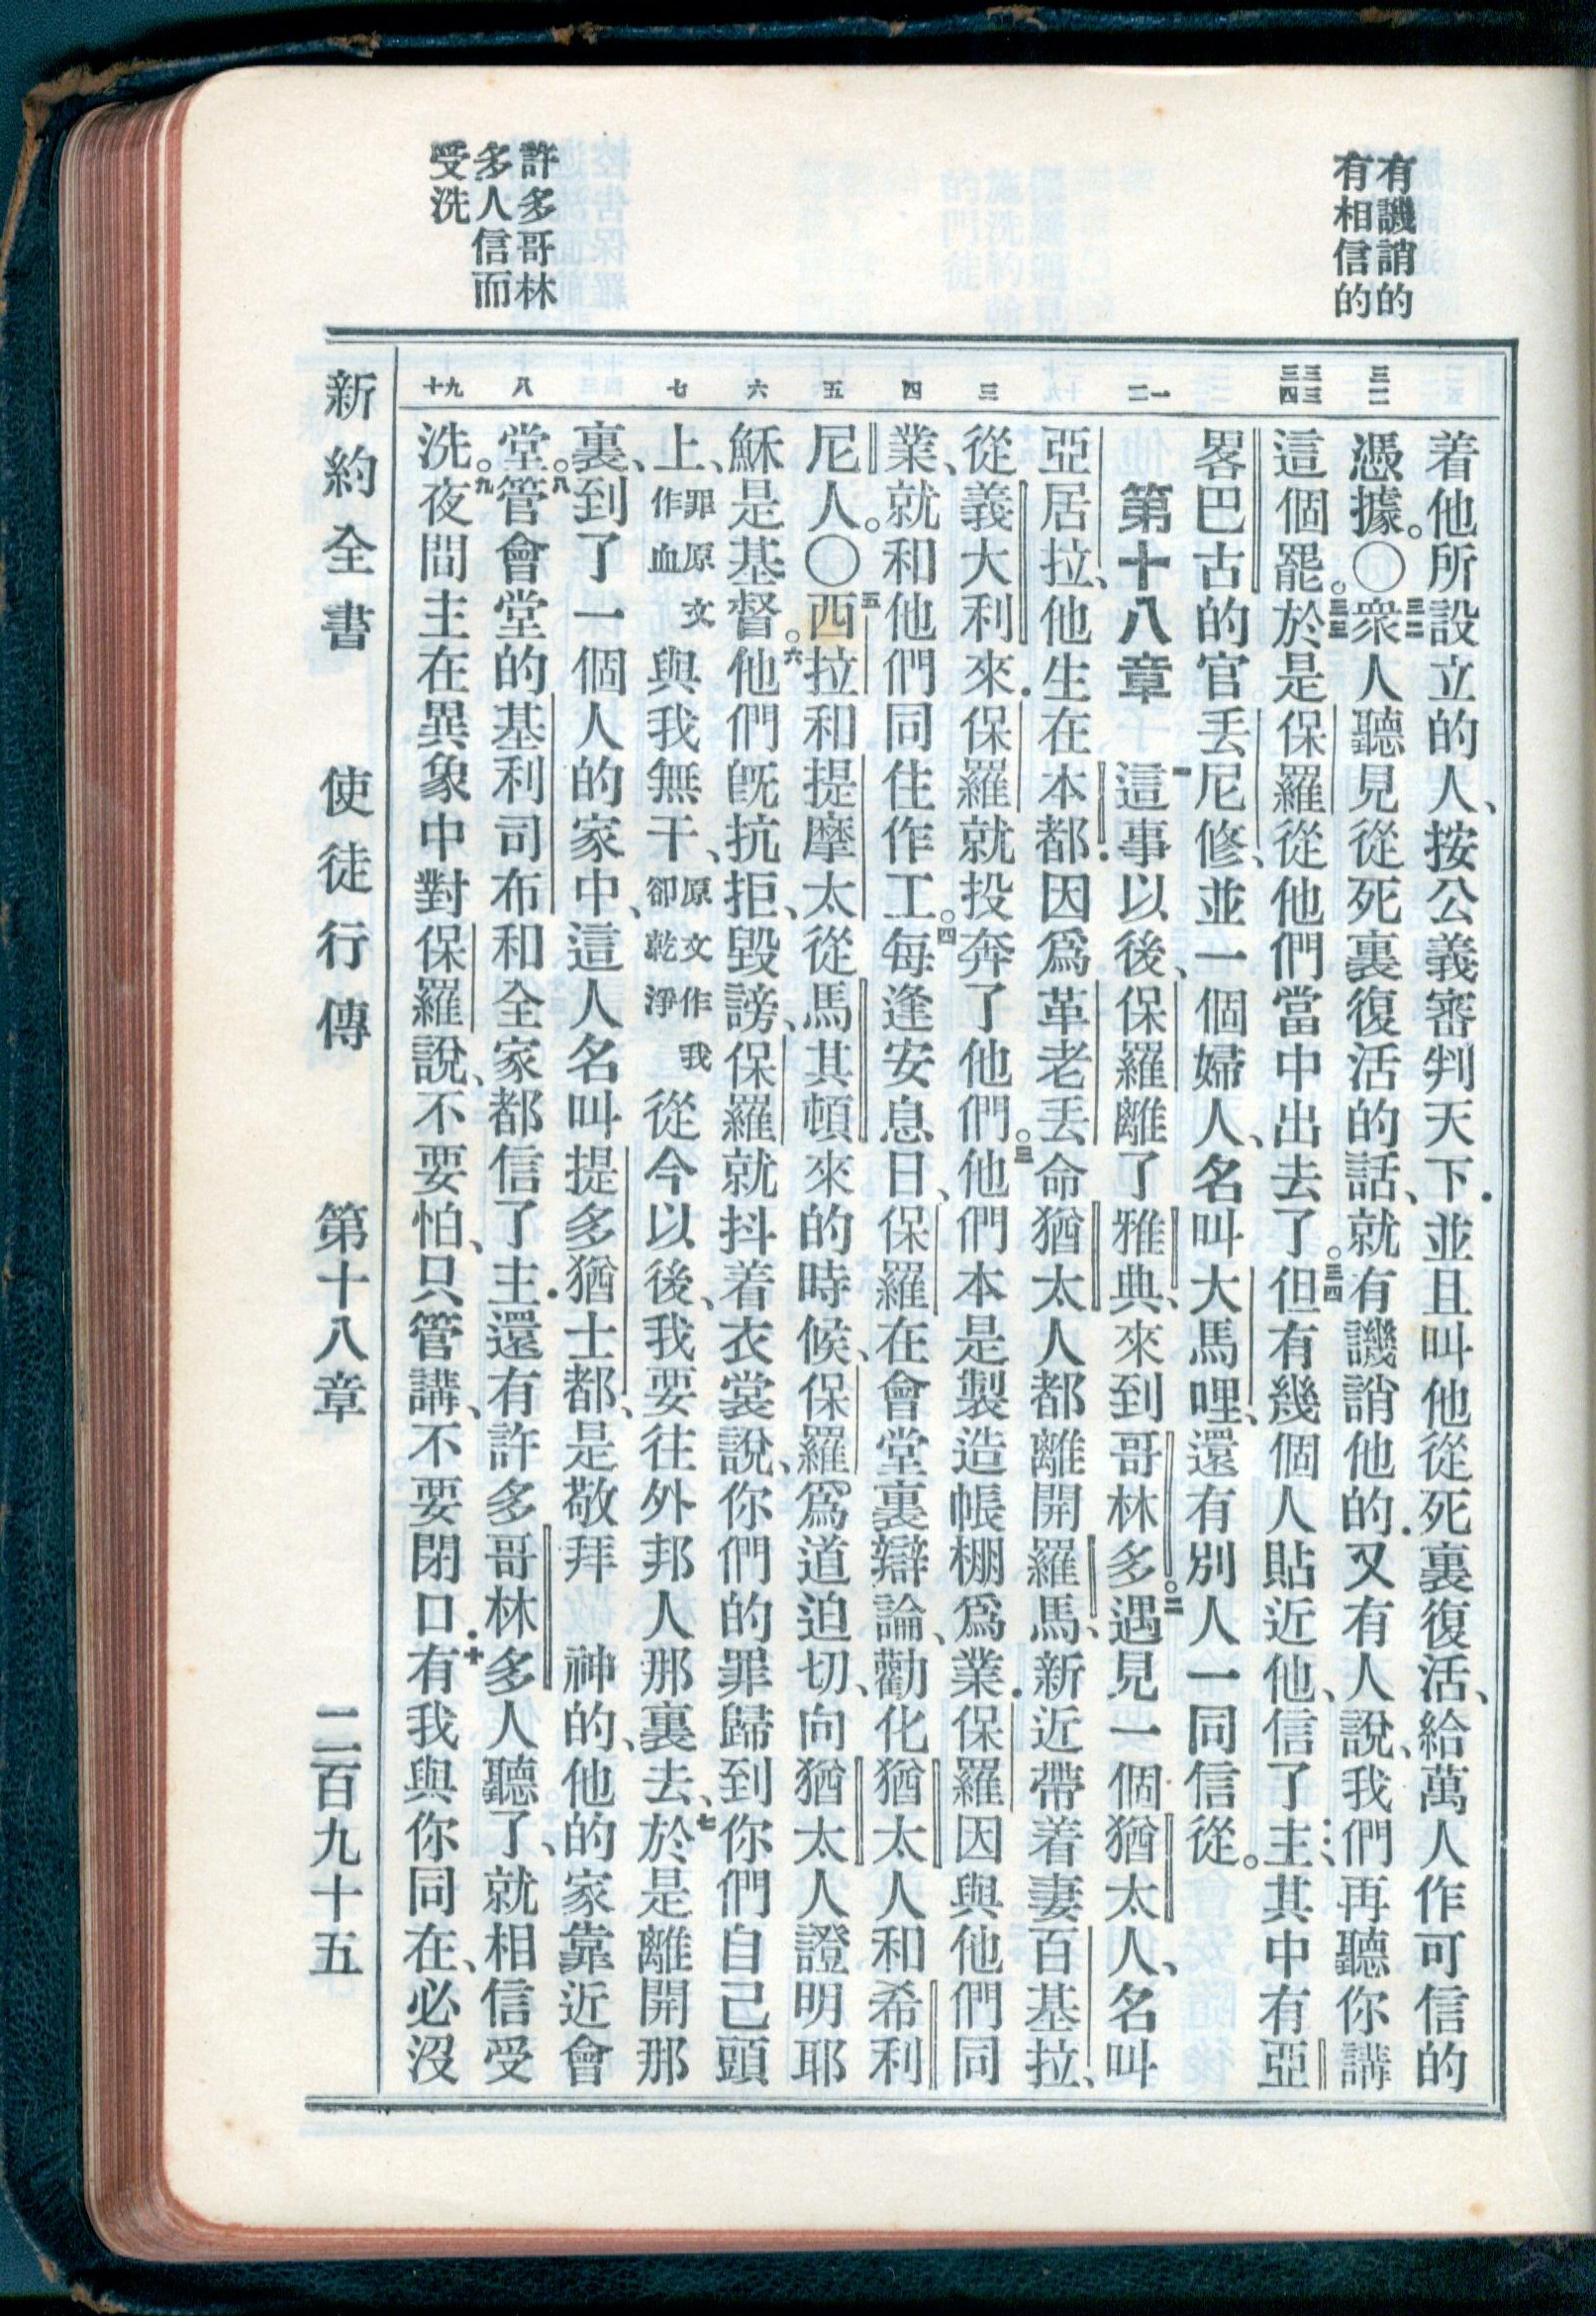 有譏誚的
有相信的
許多哥林
多人信而
受洗
三二
三三
三四
一
二
三
四
五
六
七
八
九
十
着他所設立的人、按公義審判天下．並且叫他從死裏復活、給萬人作可信的
憑據。〇三二衆人聽見從死裏復活的話、就有譏誚他的．又有人說、我們再聽你講
這個罷。三三於是保羅從他們當中出去了。三四但有幾個人貼近他、信了主其中有亞
畧巴古的官丟尼修、並一個婦人、名叫大馬哩、還有別人一同信從。
第十八章　一這事以後、保羅離了雅典、來到哥林多。二遇見一個猶太人、名叫
亞居拉、他生在本都．因爲革老丟命猶太人都離開羅馬、新近帶着妻百基拉、
從義大利來．保羅就投奔了他們。三他們本是製造帳棚爲業．保羅因與他們同
業、就和他們同住作工。四每逢安息日、保羅在會堂裏辯論、勸化猶太人和希利
尼人。〇五西拉和提摩太從馬其頓來的時候、保羅爲道迫切、向猶太人證明耶
穌是基督。六他們旣抗拒、毀謗、保羅就抖着衣裳說、你們的罪歸到你們自己頭
上、罪原文作血與我無干、原文作我卻乾淨從今以後、我要往外邦人那裏去、七於是離開那
裏、到了一個人的家中、這人名叫提多猶士都、是敬拜　神的、他的家靠近會
堂。八管會堂的基利司布和全家都信了主．還有許多哥林多人聽了、就相信受
洗。九夜間主在異象中對保羅說、不要怕、只管講、不要閉口．十有我與你同在、必沒
新約全書　使徒行傳　第十八章　二百九十五